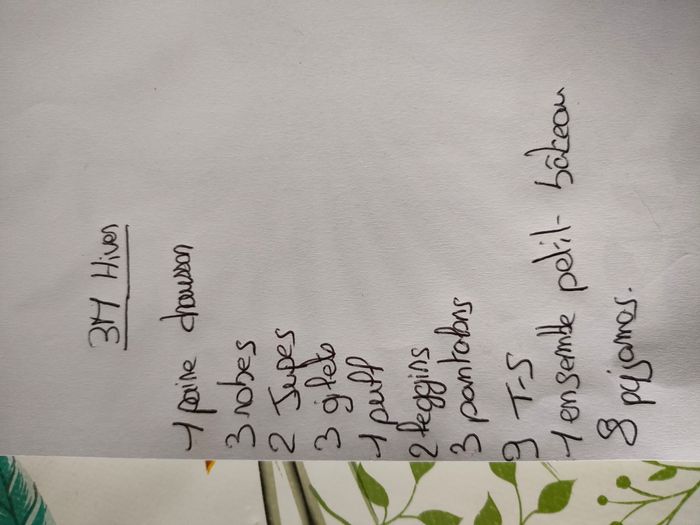 3M Hiver
1 paire chausson
3 robes
2 Jupes
3 gilets
1 puff
2 leggins
3 pantalons
9 T-S
1 ensemble petit-bâteau
8 pyjamas.